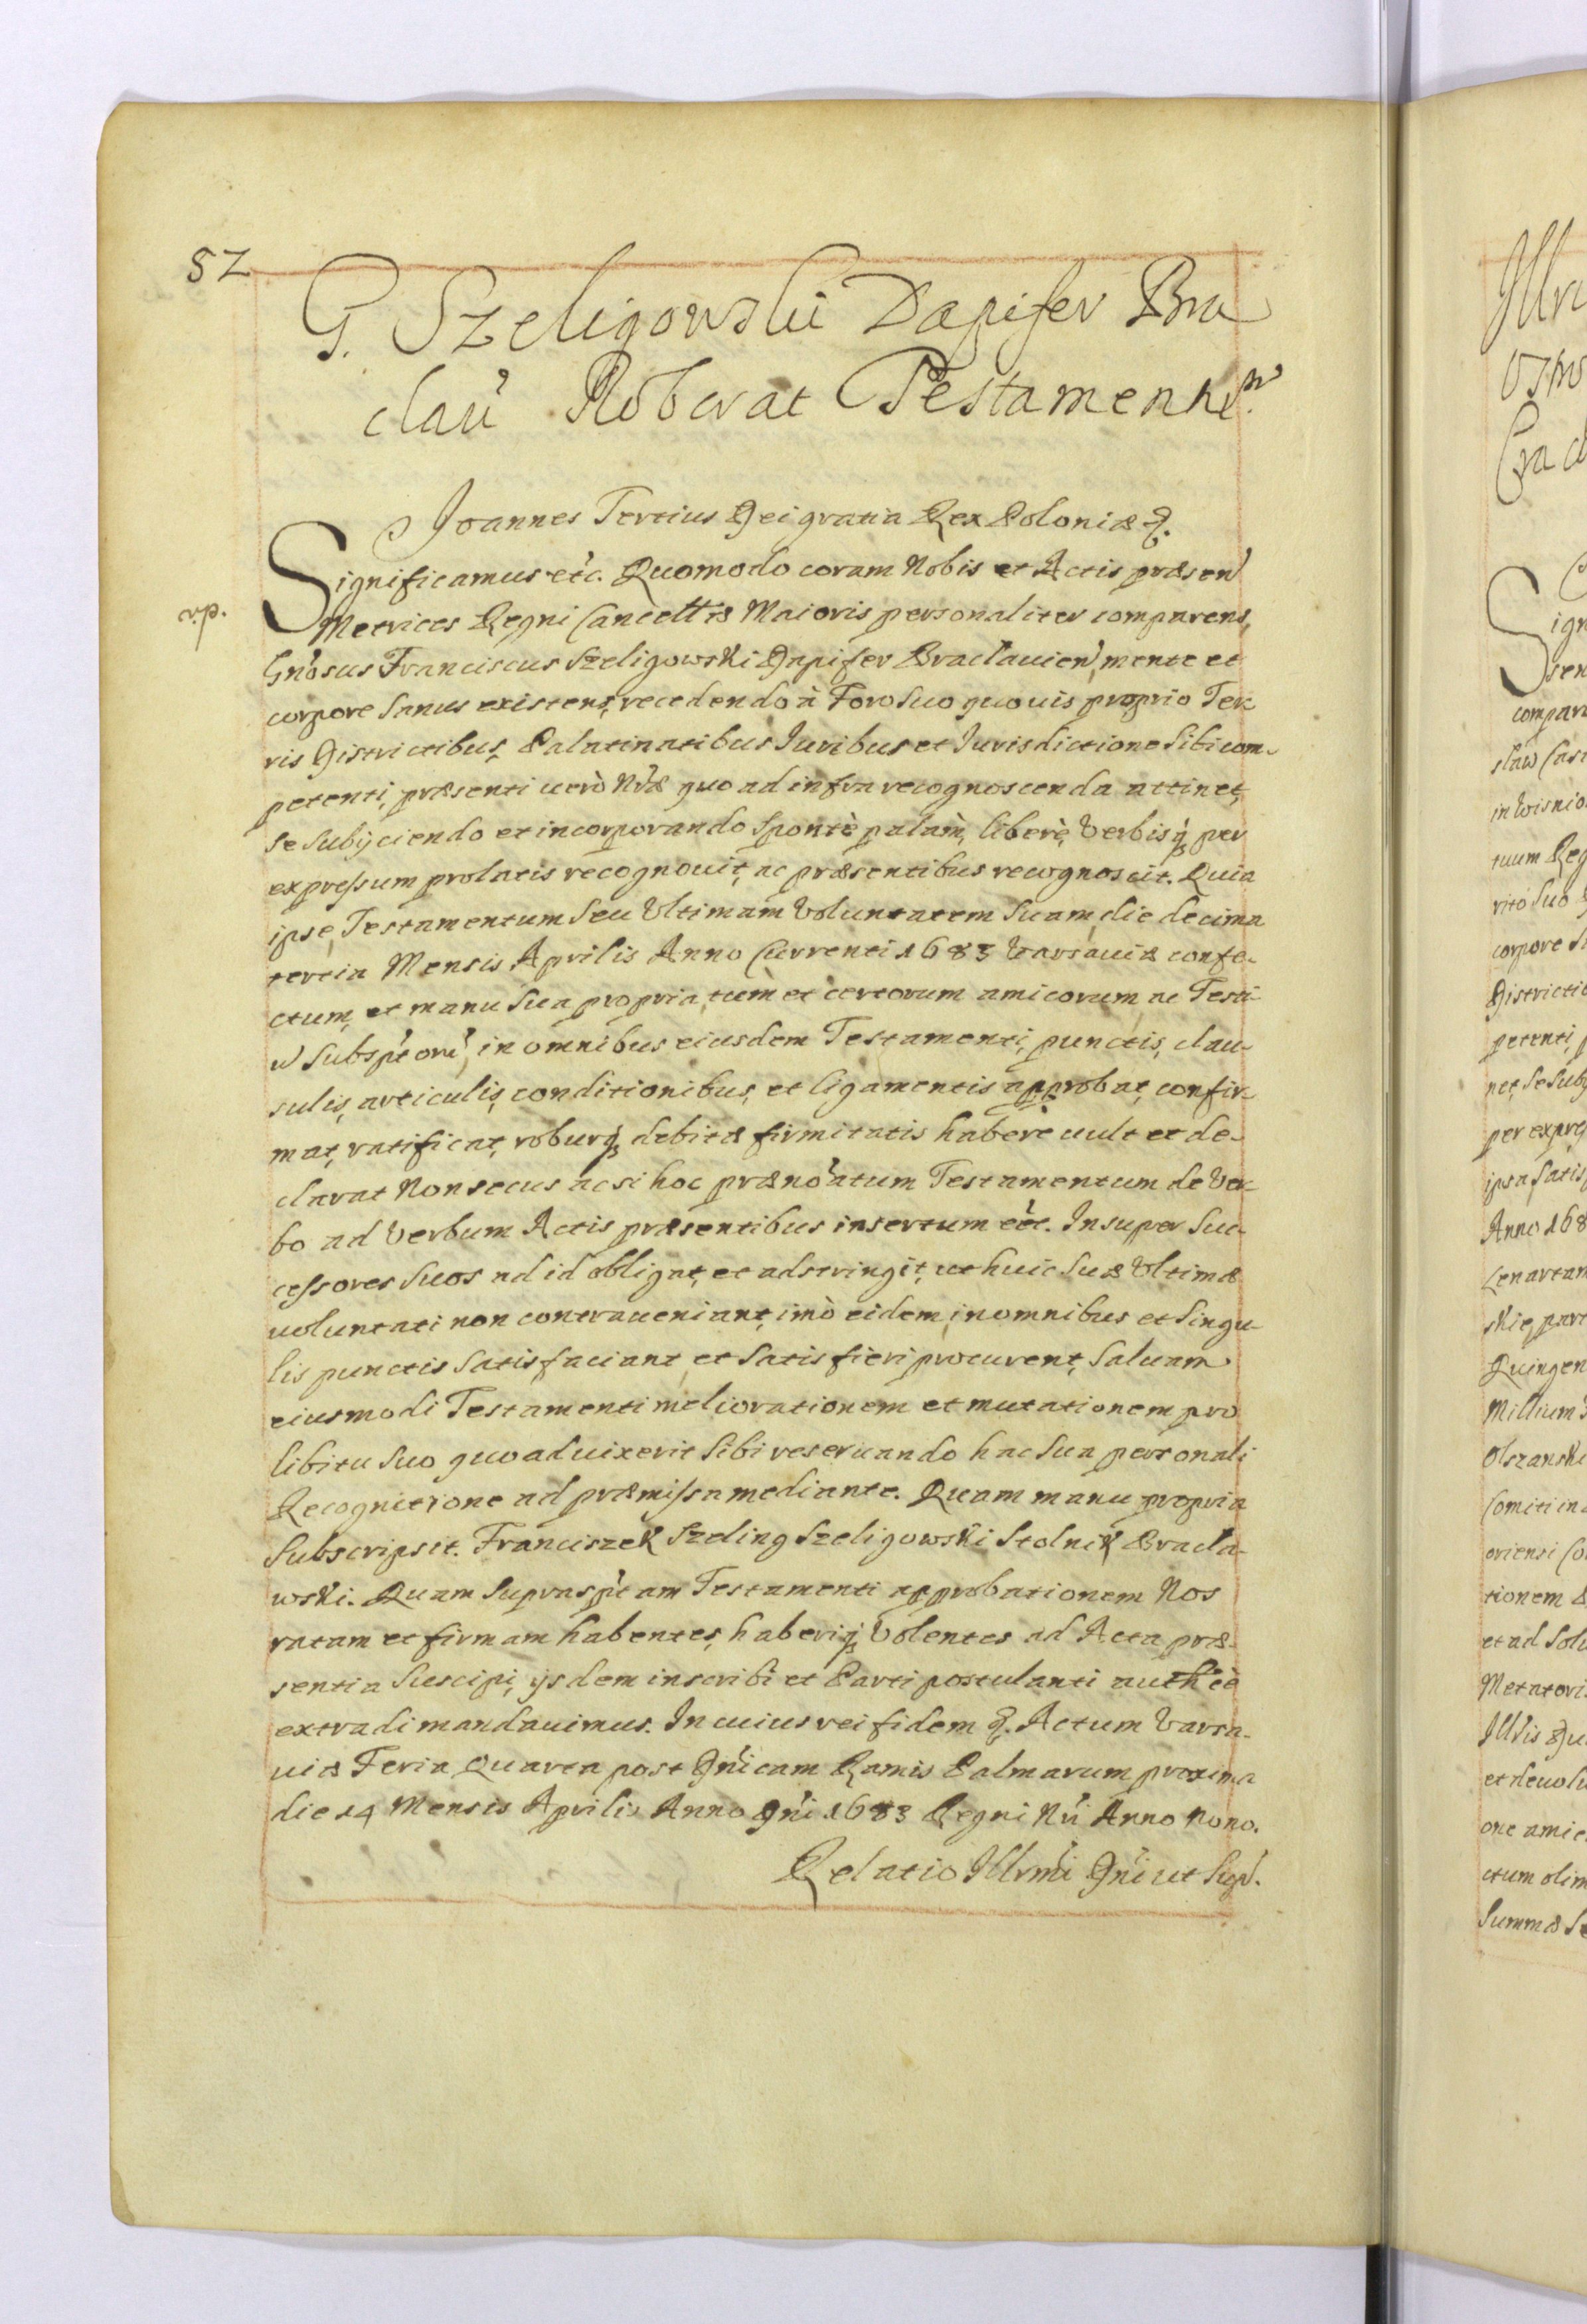 52
G. Szeligowski Dapifer Bra
clav̓ Roborat Testamentu̓m
Joannes Tertius Dei gratia Rex Poloniæ &.
Significamus etc. Quomodo coram Nobis et Actis præsen̓
v.p.
Metrices Regni Cancellræ Maioris personaliter comparens,
Gn̓osus Franciscus Szeligowski Dapifer Braclauien̓, mente et
corpore Sanus existens, recedendo à Foro Suo quouis proprio Ter
ris Districtibus, Palatinatibus Iuribus et Iurisdictione Sibi com-
petenti, præsenti uerò Nr̓æ quo ad infra recognoscenda attinet,
se Subijciendo et incorporando Spontè palàm, liberè, Verbisq́ per
expressum prolatis recognouit, ac præsentibus recognoscit. Quia
ipse, Testamentum Seu Vltimam Voluntatem Suam, die decima
tertia Mensis Aprilis Anno Currenti 1683 Varsauiæ confe-
ctum, et manu Sua propria, tum et certorum amicorum, ac Testi-
u̓ Subsp̓torú, in omnibus eiusdem Testamenti, punctis, clau-
sulis, articulis, conditionibus, et ligamentis approbat, confir-
mat, ratificat, roburq́ debitæ firmitatis habere uult et de-
clarat Non secus ac si hoc præno̓atum Testamentum de Ver-
bo ad Verbum Actis præsentibus insertum eēt. Insuper Suc-
cessores Suos ad id obligat, et adstringit, ut huic Suæ Vltimæ
uoluntati non contraueniant, imò eidem, in omnibus et Singu-
lis punctis Satisfaciant, et Satisfieri procurent, Saluam
eiusmodi Testamenti meliorationem et mutationem pro
libitu Suo quoad uixerit Sibi reseruando hac Sua personali
Recognitione ad præmissa mediante. Quam manu propria
Subscripsit. Franciszek Szeling Szeligowski Stolnik Bracla-
wski. Quam Suprasp̓tam Testamenti approbationem Nos
ratam et firmam habentes, haberiq́ Volentes ad Acta præ-
sentia Suscipi, ijsdem inscribi et Parti postulanti auth̓ēe
extradi mandauimus. In cuius rei fidem &. Actum Varsa-
uiæ Feria Quarta post Dn̓icam Ramis Palmarum proxima
die 14 Mensis Aprilis Anno Dn̓i 1683 Regni Nr̓i Anno Nono.
Relatio Illrm̓i Dn̓i ut Sup̓.